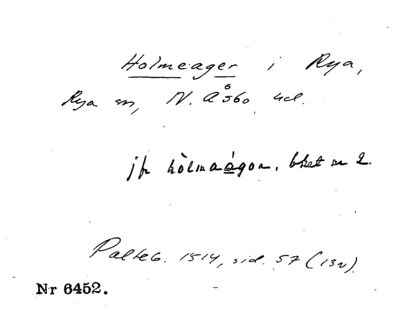 Holmeager i Rya,
Rya sn, N. Åsbo hd.
jfr hòlmaágor, bket nr 2.
Palteb. 1514, sid. 57 (13v).
Nr 6452.